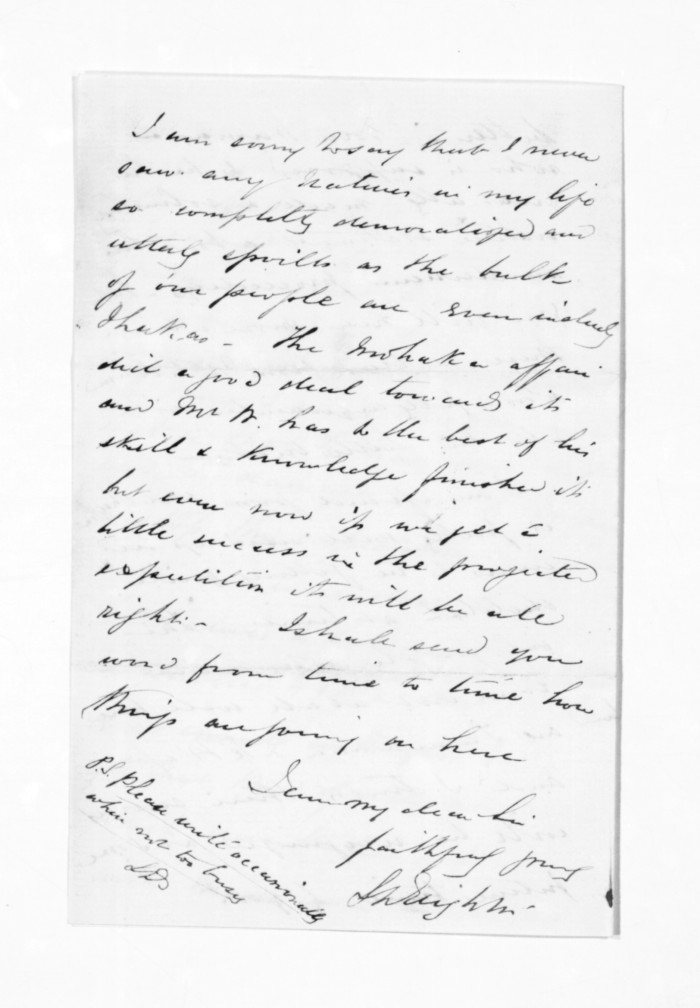 I am sorry to say that I never
saw any natives in my life
so completely demoralized and
utterly spoilt as the bulk
of our people are even including
Ihaka. The Mohaka affair
did a good deal towards it
and Mr W. has to the best of his
skill & knowledge finished it
but even now if we get a
little success in the projected
expedition it will be all
right - I shall send you
word from time to time how
things are going on here
I am my dear Sir
faithfully yours
S Deighton
P.S. Please write occasionally
when not too busy
SD